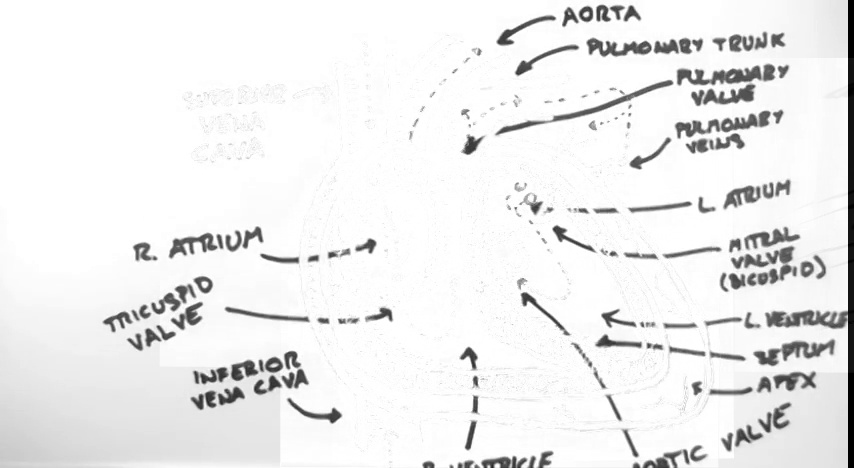 AORTA
PULMONARY TRUNK
PULMONARY
VALVE
PULMONARY
VEINS
SUPERIOR
VENA
CAVA
L. ATRIUM
R. ATRIUM
MITRAL
VALVE
(BICUSPID)
TRICUSPID
VALVE
L. VENTRICLE
SEPTUM
INFERIOR
VENA CAVA
APEX
R. VENTRICLE
AORTIC VALVE